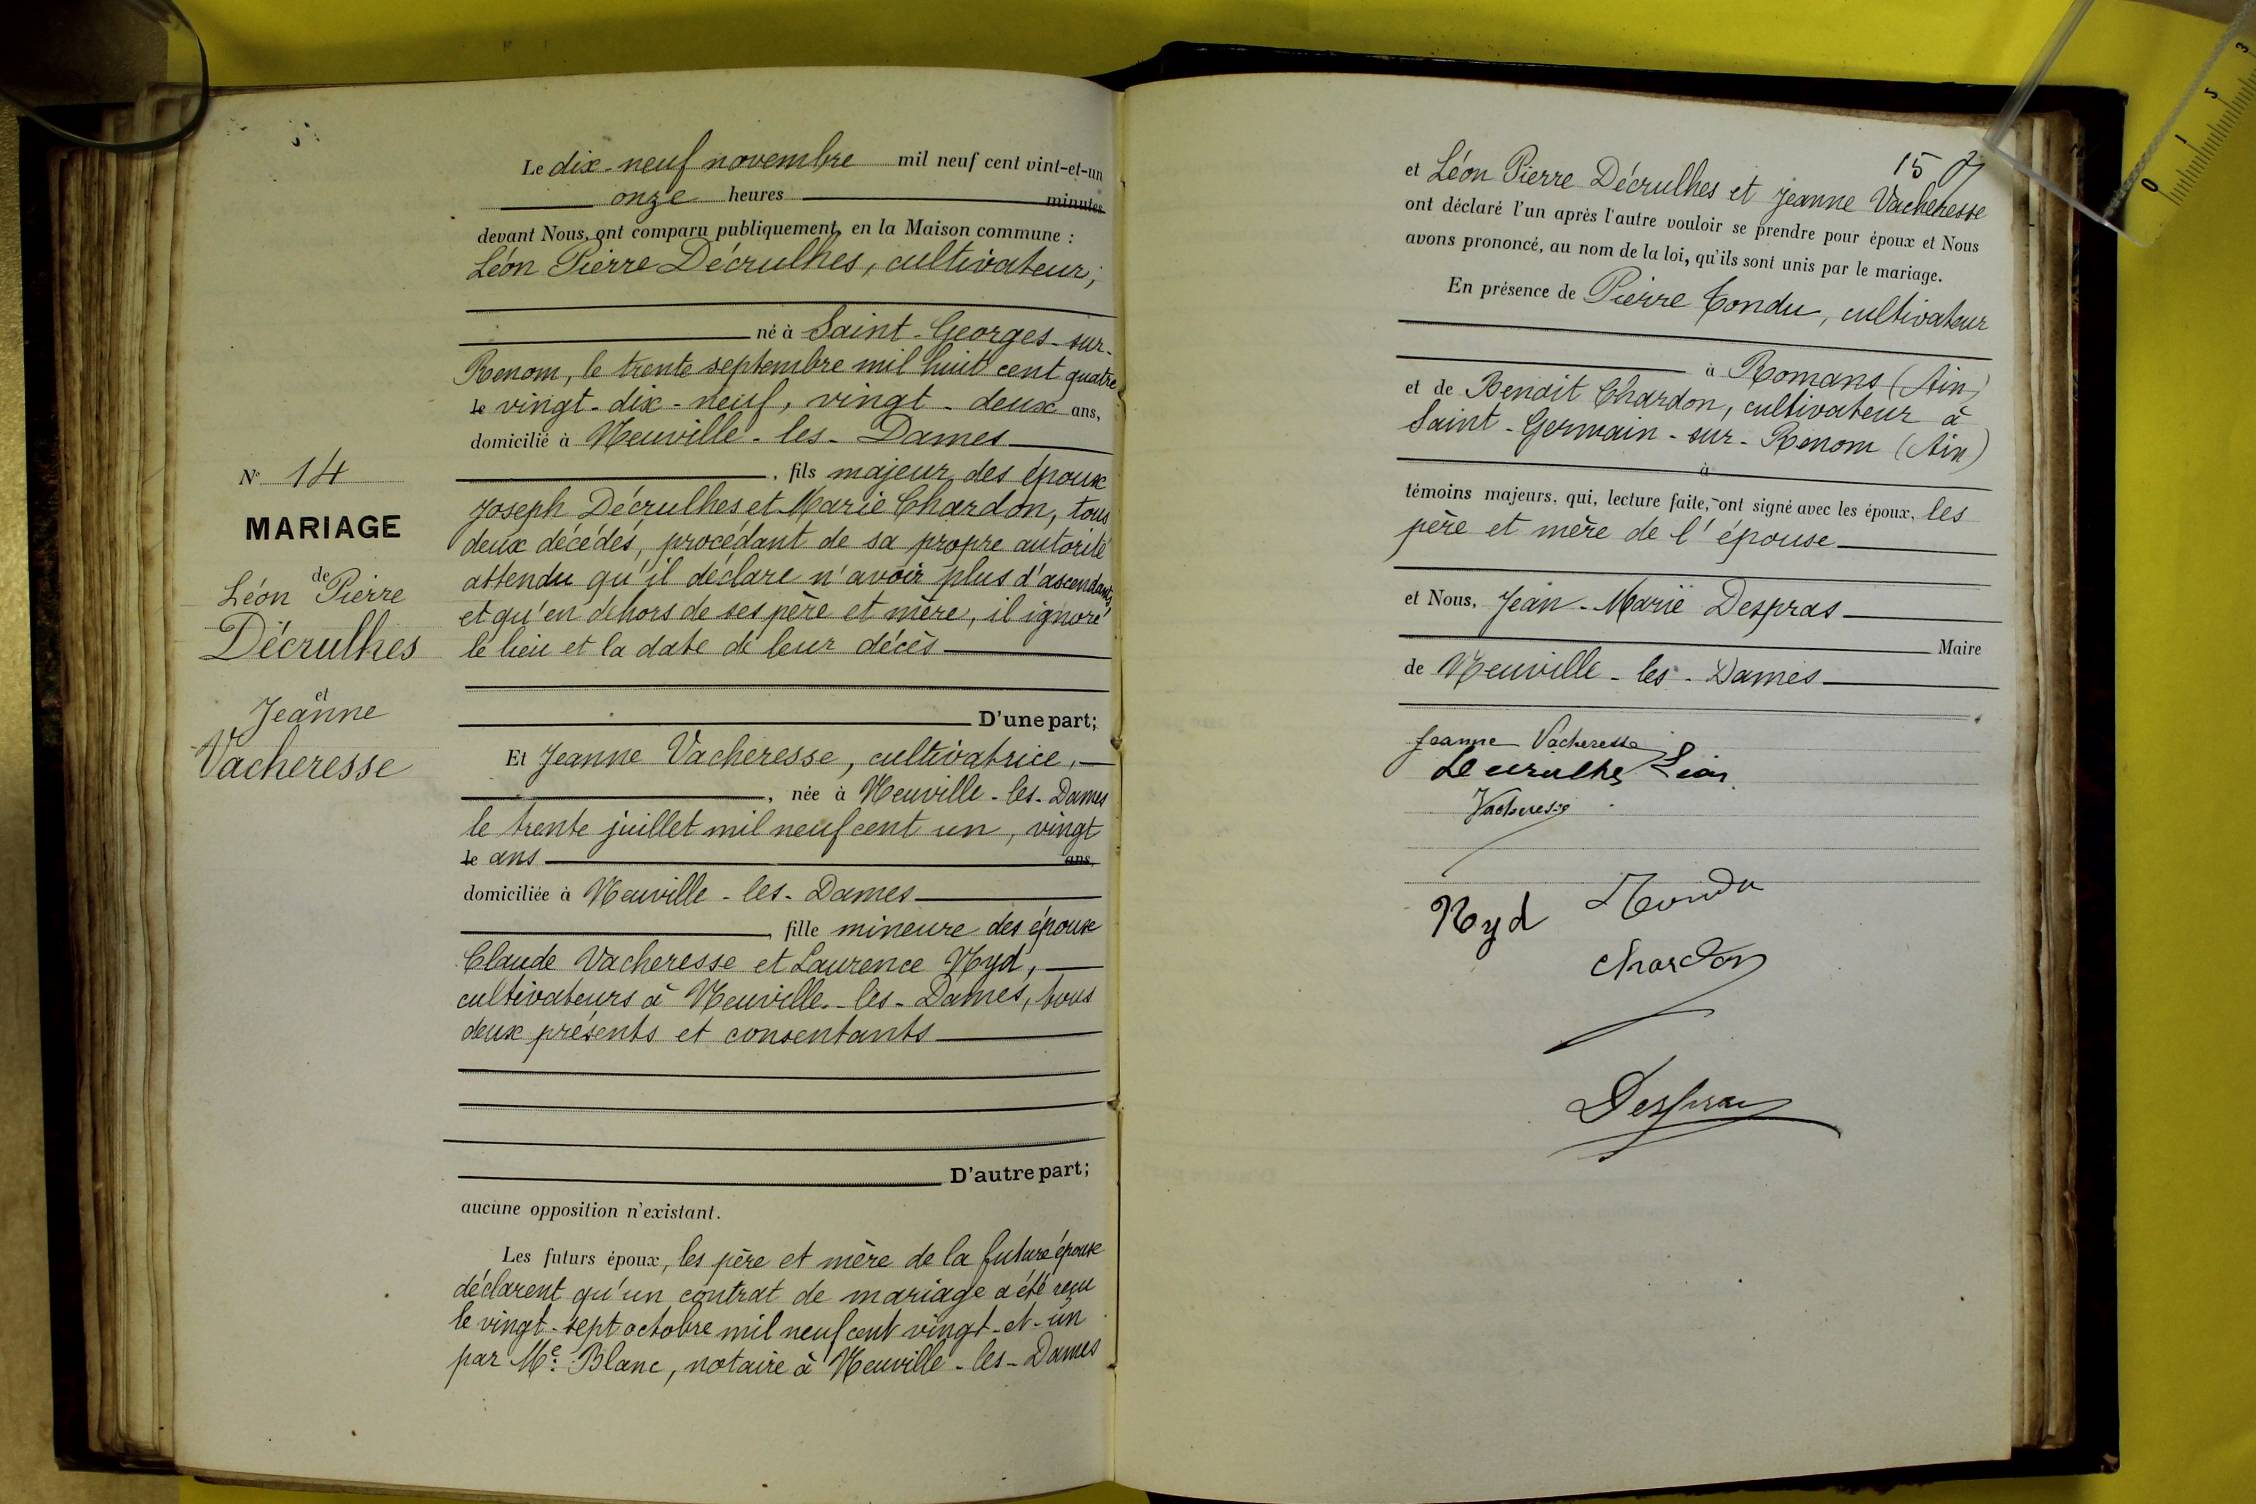 Le dix-neuf novembre mil neuf cent vint-et-un
onze heures minutes
devant Nous, ont comparu publiquement, en la Maison commune :
Léon Pierre Décrulhes, cultivateur,
né à Saint-Georges-sur-
Renom, le trente septembre mil huit cent quatre
le vingt-dix-neuf, vingt-deux ans,
domicilié à Neuville-les-Dames
, fils majeur des époux
Joseph Décrulhes et Marie Chardon, tous
deux décédés, procédant de sa propre autorité
attendu qu'il déclare n'avoir plus d'ascendants
et qu'en dehors de ses père et mère, il ignore
le lieu et la date de leur décès
D'une part;
Et Jeanne Vacheresse, cultivatrice,
, née à Neuville-les-Dames
le trente juillet mil neuf cent un, vingt
le ans ans,
domiciliée à Neuville-les-Dames
, fille mineure des époux
Claude Vacheresse et Laurence Nyd,
cultivateurs à Neuville-les-Dames, tous
deux présents et consentants
D'autre part;
aucune opposition n'existant.
Les futurs époux, les père et mère de la future épouse
déclarent qu'un contrat de mariage a été reçu
le vingt-sept octobre mil neuf cent vingt-et-un
par Me. Blanc, notaire à Neuville-les-Dames
No 14
MARIAGE
de
Léon Pierre
Décrulhes
et
Jeanne
Vacheresse
15
et Léon Pierre Décrulhes et Jeanne Vacheresse
ont déclaré l'un après l'autre vouloir se prendre pour époux et Nous
avons prononcé, au nom de la loi, qu'ils sont unis par le mariage.
En présence de Pierre Condu, cultivateur
à Romans (Ain)
et de Benoit Chardon, cultivateur à
Saint-Germain-sur-Renom (Ain)
à
témoins majeurs, qui, lecture faite, ont signé avec les époux, les
père et mère de l'épouse
et Nous, Jean-Marie Despras
Maire
de Neuville-les-Dames
Jeanne Vacheresse
Decrulhes Léon
Vacheresse
Nyd
Chardon
Despras
0 1 5 3